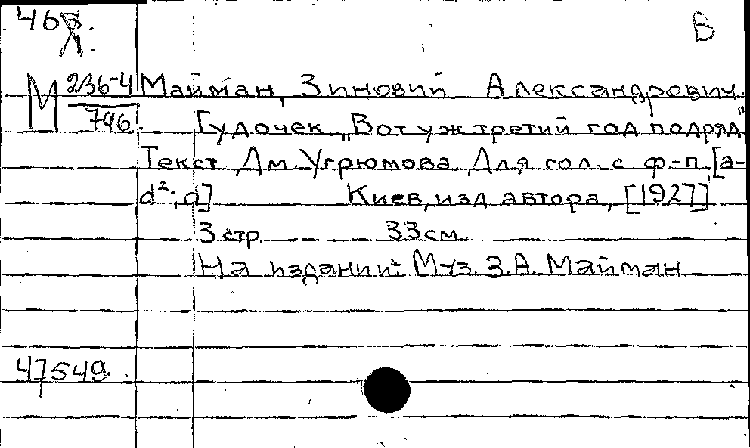 46в.
В
Л.
М 236-4
796
Майман, Зиновий Александрович.
Гудочек „Вот уж третий год подряд"
Текст Дм. Угрюмова Для гол. с ф-п. [a-
d²; a] Киев, изд. автора, [1927]
3 стр. 33 см.
На издании: Муз. З.А. Майман
47549